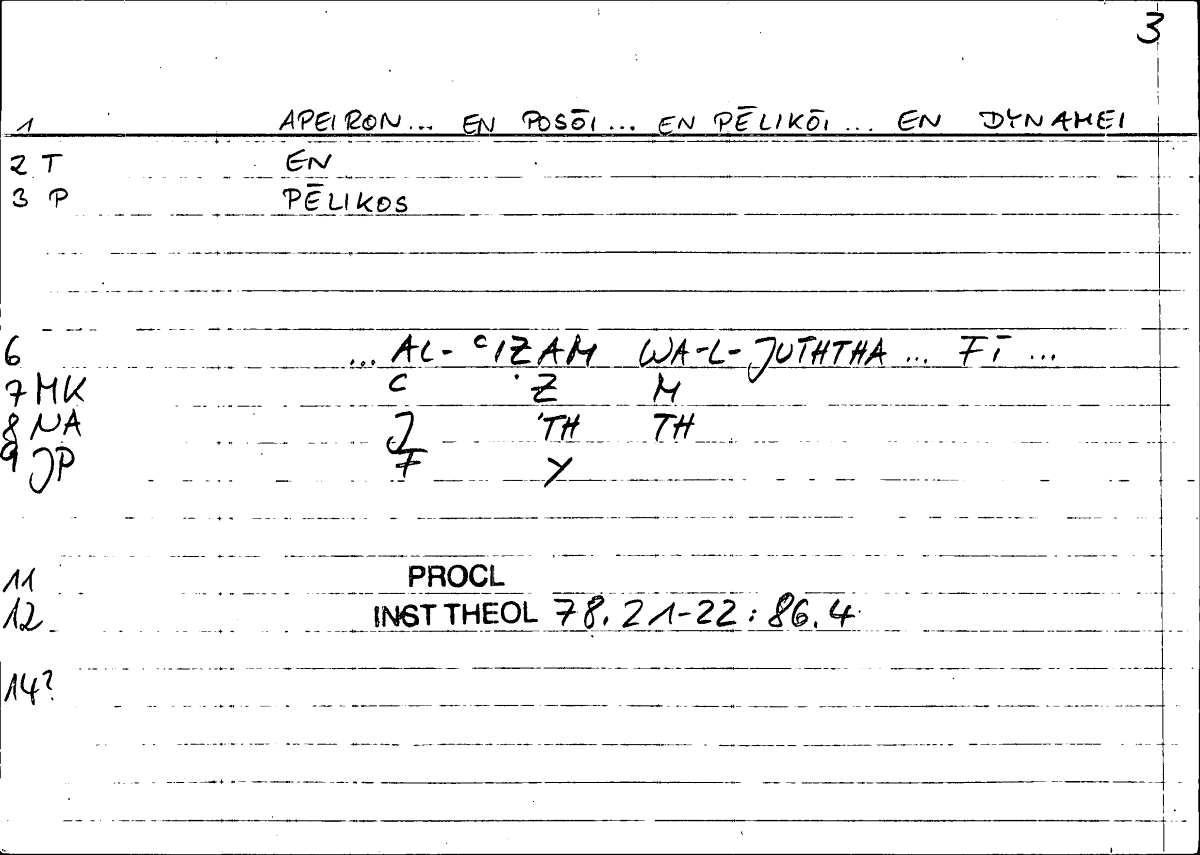 3
1 APEIRON... EN POSŌI... EN PĒLIKŌI... EN DYNAMEI
2 T EN
3 P PĒLIKOS
6 ... AL-ʿIẒAM WA-L-JUTHTHA ... FĪ ...
7 MK ʿ Ẓ M
8 NA J TH TH
9 JP F Y
11 PROCL
12 INST THEOL 78.21-22:86.4
14?